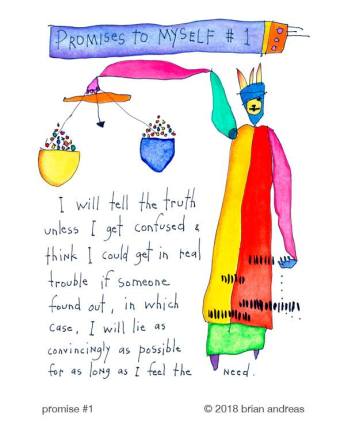 PROMISES TO MYSELF # 1
I will tell the truth
unless I get confused &
think I could get in real
trouble if someone
found out, in which
case, I will lie as
convincingly as possible
for as long as I feel the need.
promise #1 © 2018 brian andreas